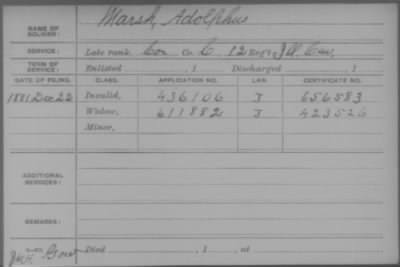 Marsh, Adolphus
NAME OF SOLDIER:
SERVICE: Late rank, Cor Co. C, 12 Reg't Ill. Cav.
TERM OF SERVICE: Enlisted , 1 Discharged , 1
DATE OF FILING. CLASS. APPLICATION NO. LAW. CERTIFICATE NO.
1881 Dec 22 Invalid, 436106 J 656583
Widow, 611882 J 423526
Minor,
ADDITIONAL SERVICES:
REMARKS:
Died , 1 , at